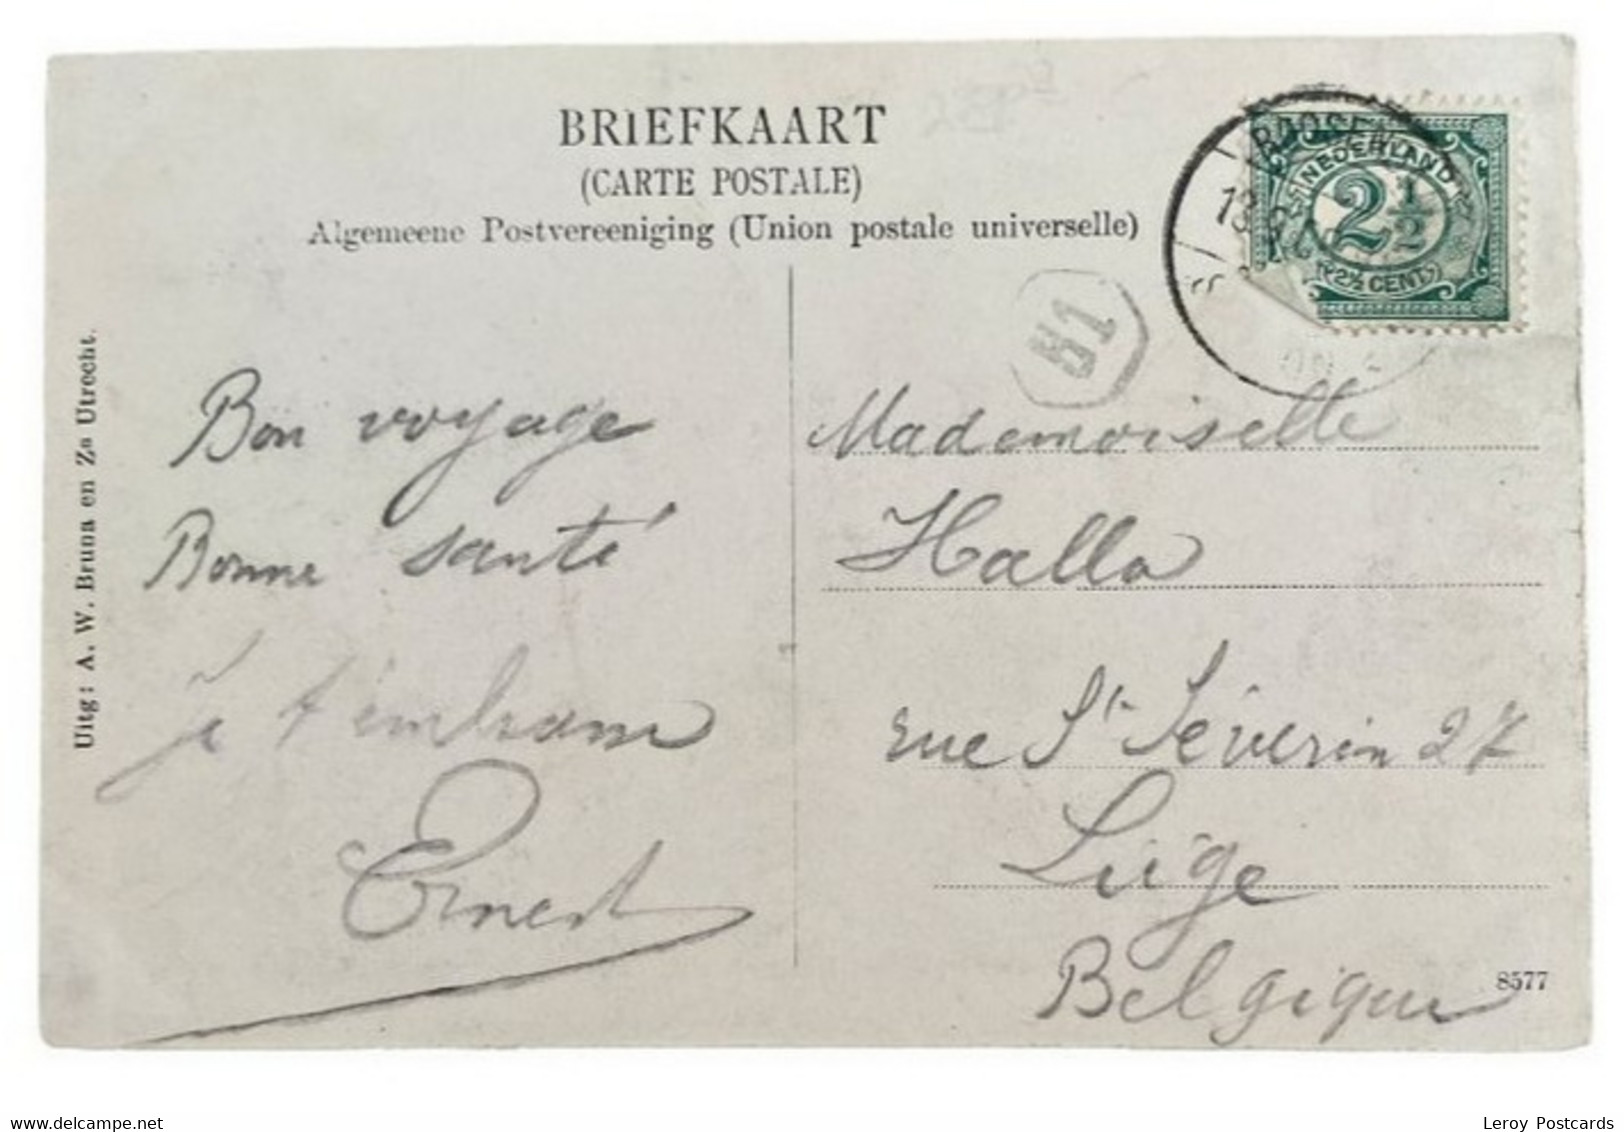 BRIEFKAART
(CARTE POSTALE)
Algemeene Postvereeniging (Union postale universelle)
NEDERLAND
2½
2½ CENT
B1
Uitg: A. W. Bruna en Zo Utrecht.
Bon voyage
Bonne santé
Je t'embrasse
Ernest
Mademoiselle
Halla
rue St Séverin 27
Liége
Belgique
8577
delcampe.net
Leroy Postcards